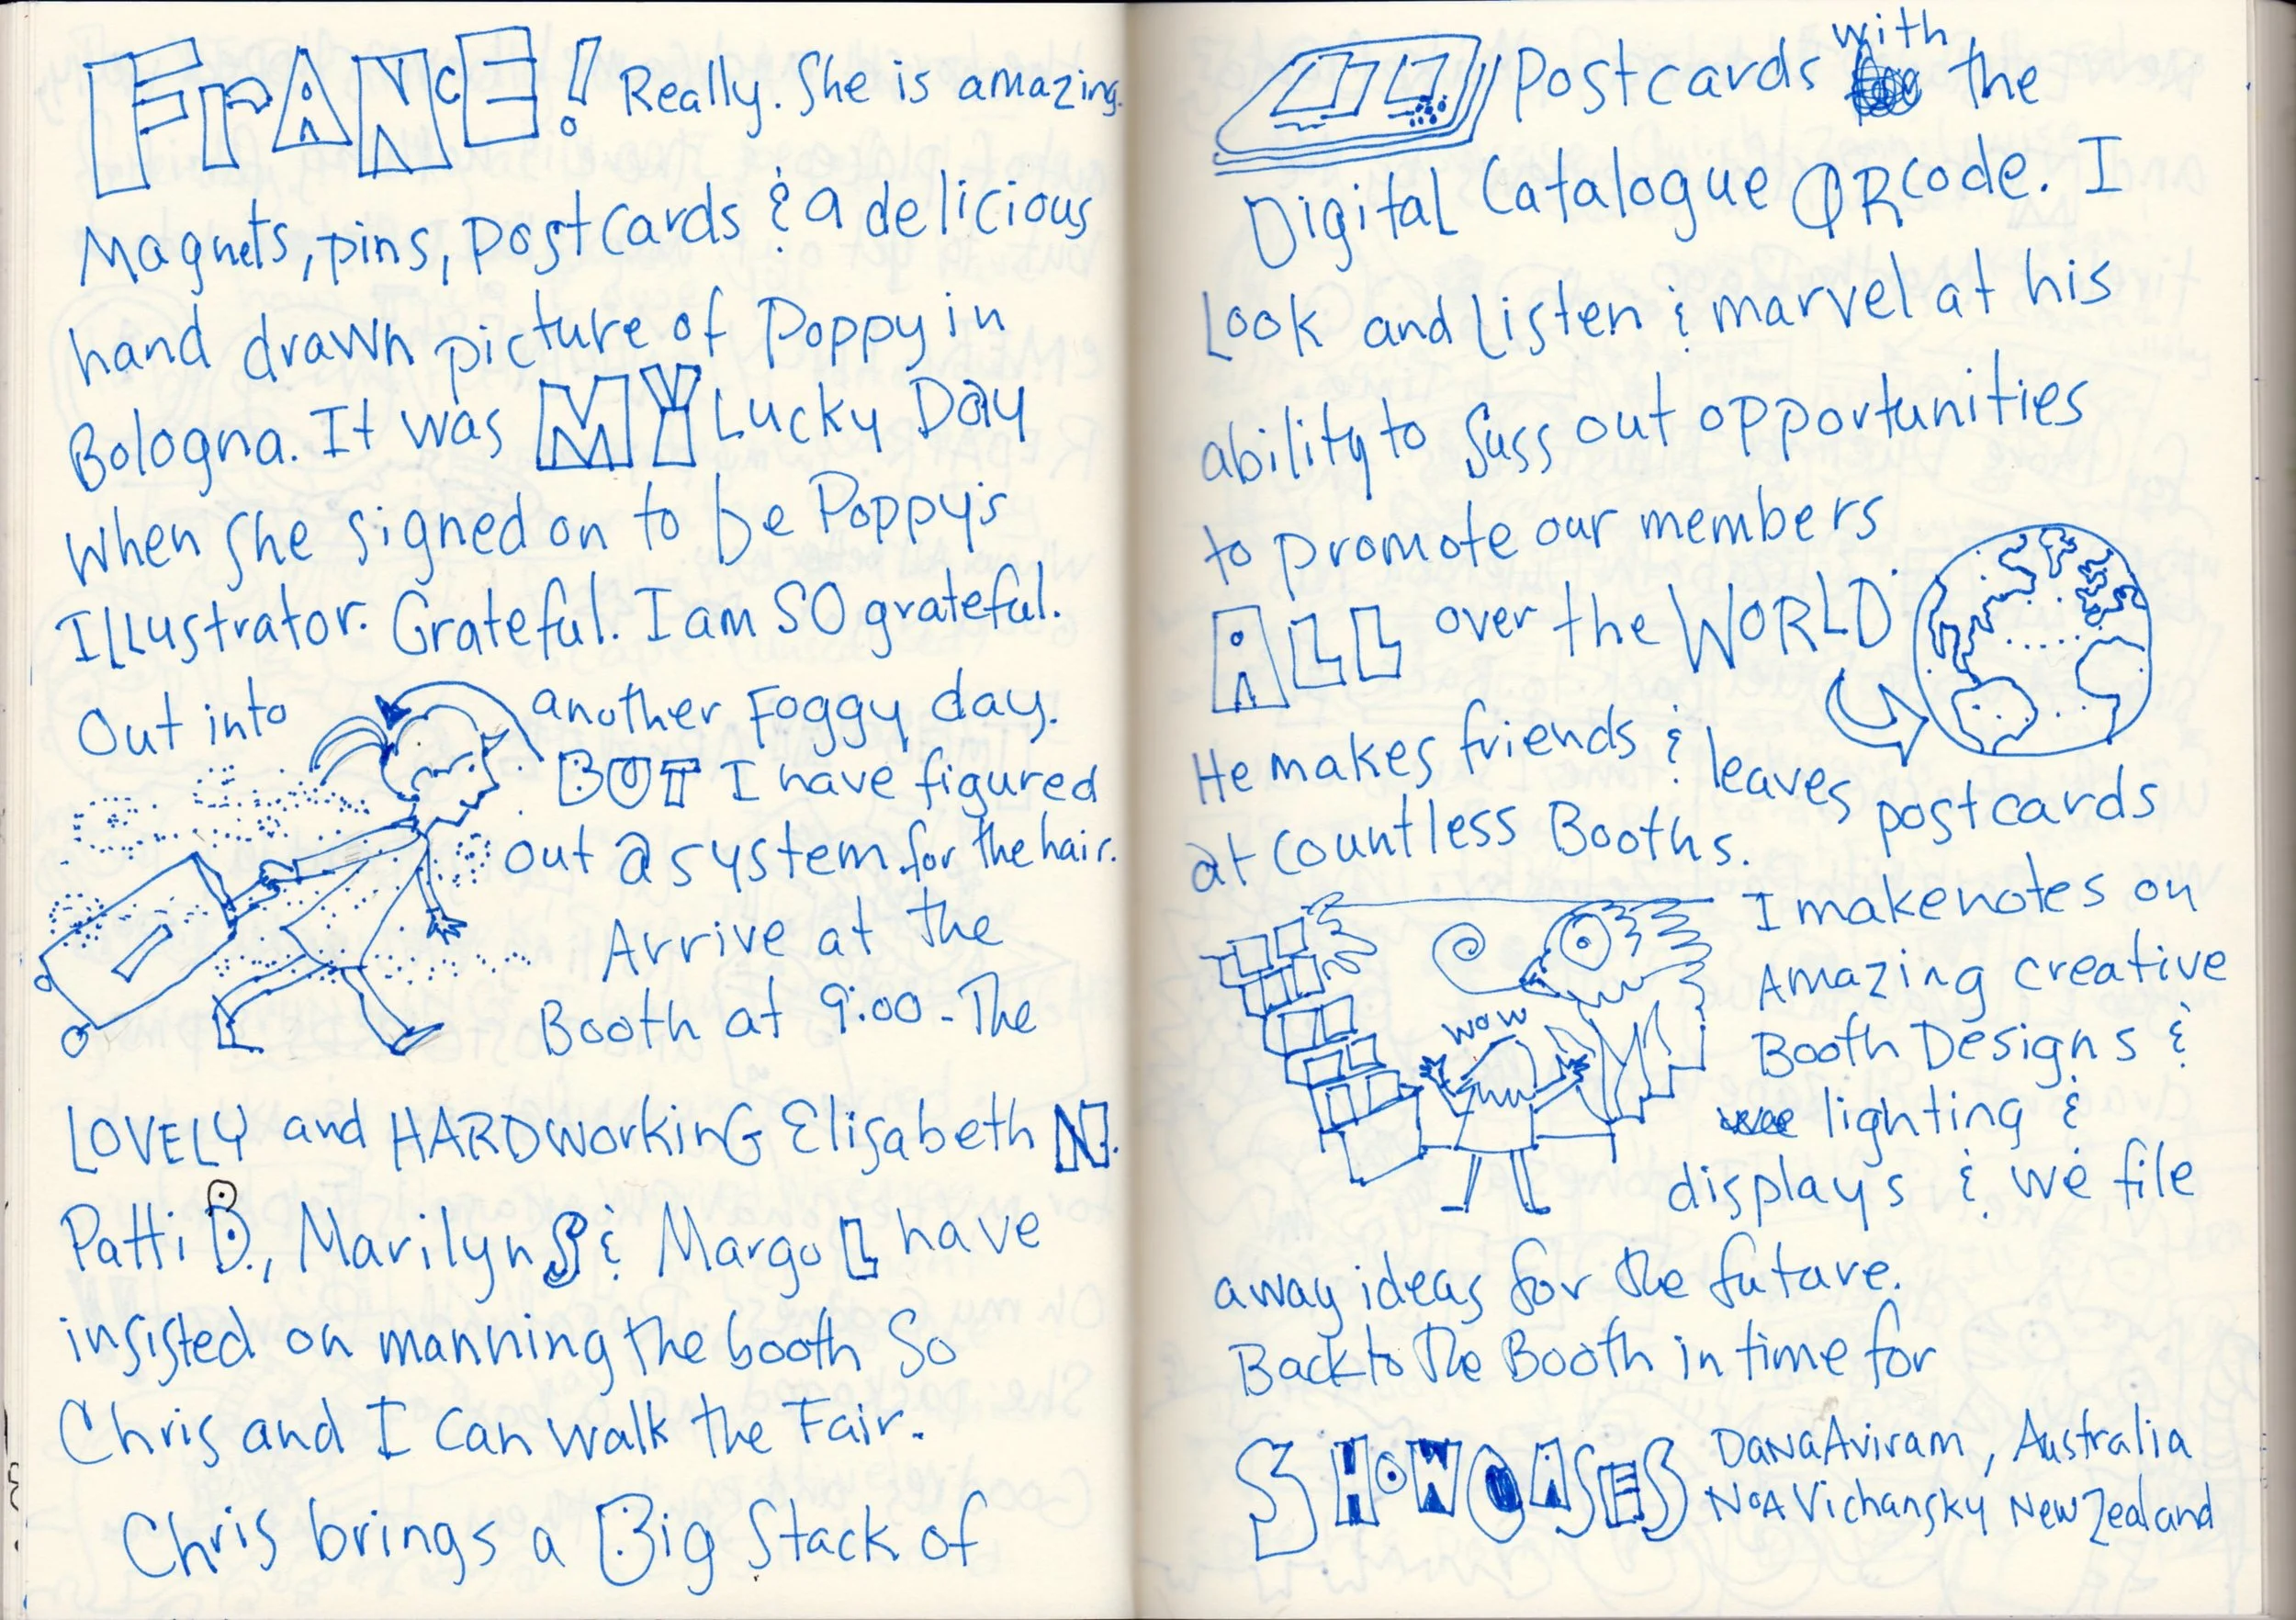 FrANCE! Really. She is amazing.
Magnets, pins, postcards & a delicious
hand drawn picture of Poppy in
Bologna. It was MY Lucky Day
When she signed on to be Poppy's
Illustrator. Grateful. I am SO grateful.
Out into another Foggy day.
BUT I have figured
out a system for the hair.
Arrive at the
Booth at 9:00 - The
LOVELY and HARDworkinG Elisabeth N.
Patti B., Marilyn S & Margo L have
insisted on manning the booth So
Chris and I can walk the Fair.
Chris brings a Big Stack of
Postcards with the
Digital Catalogue QR code. I
Look and Listen & marvel at his
ability to suss out opportunities
to promote our members
ALL over the WORLD.
He makes friends & leaves postcards
at countless Booths.
I make notes on
Amazing creative
Booth Designs &
lighting &
displays & we file
wow
away ideas for the future.
Back to the Booth in time for
SHOWCASES Dana Aviram, Australia
Noa Vichansky New Zealand